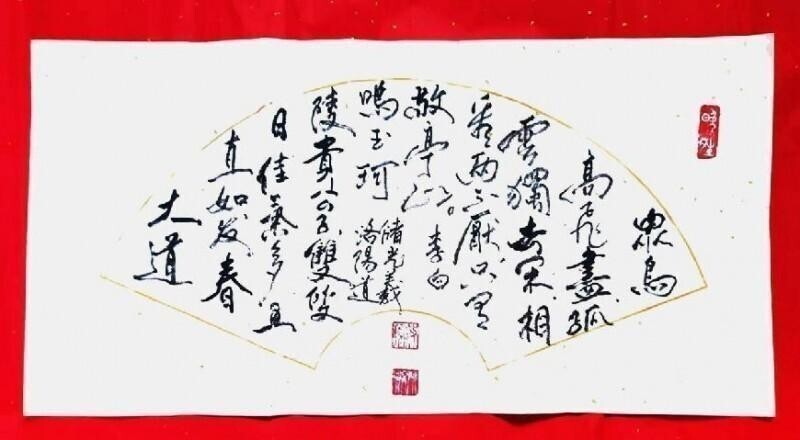 眾鳥
高飛盡孤
雲獨去闲相
看两不厭只有
敬亭山
李白
大道
直如发春
日佳氣多五
陵貴公子雙雙
鳴玉珂
儲光羲
洛陽道